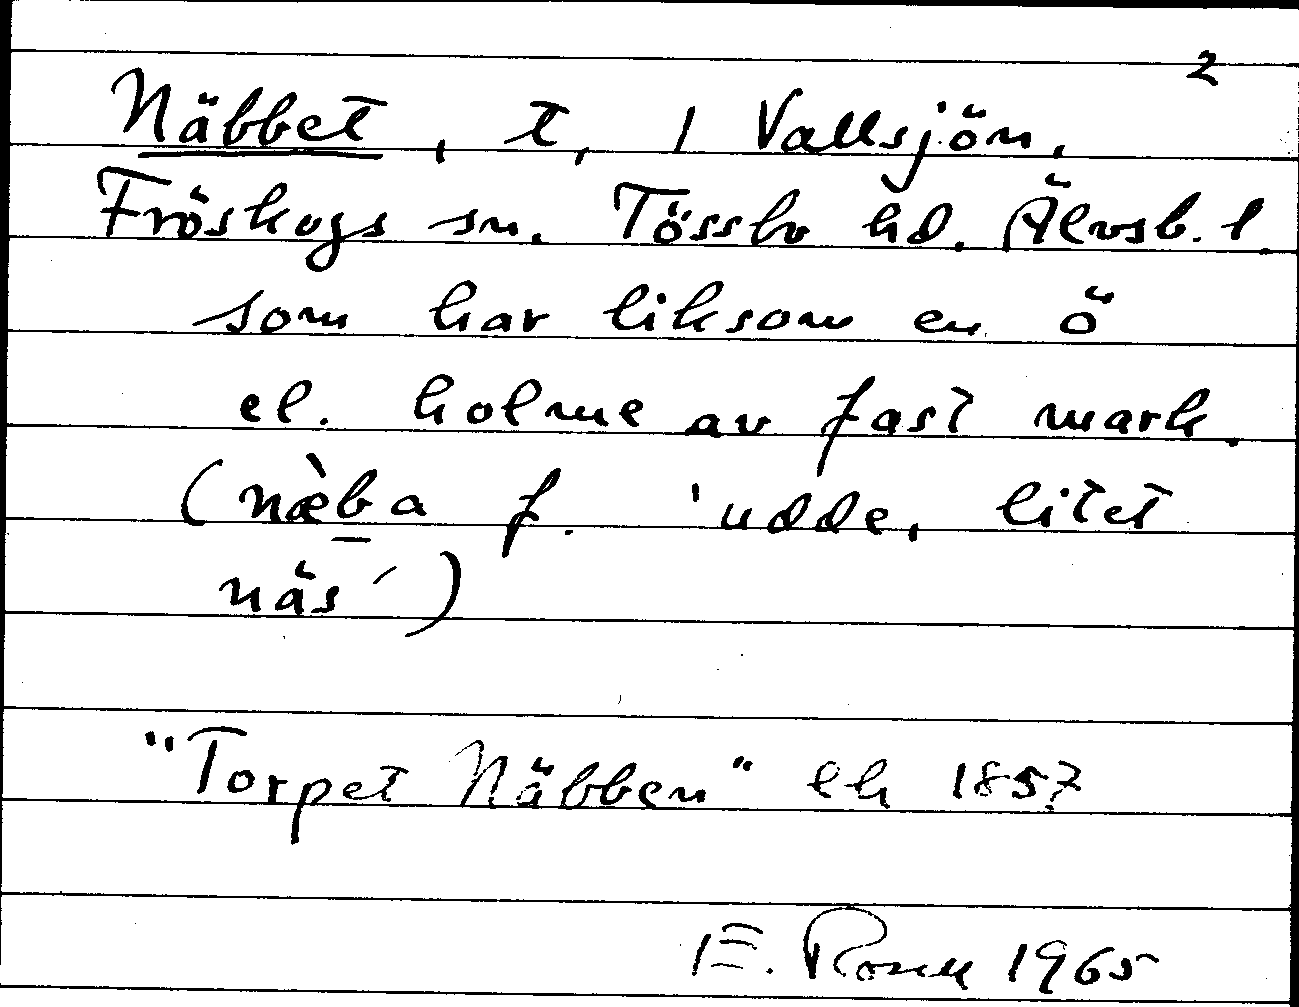 2
Näbbet, t, i Vallsjön,
Fröskogs sn. Tössbo hd. Älvsb. l.
som har liksom en ö
el. holme av fast mark.
(næ̀ba f. 'udde, litet
näs')
"Torpet Näbben" ek 1857
E. 1965